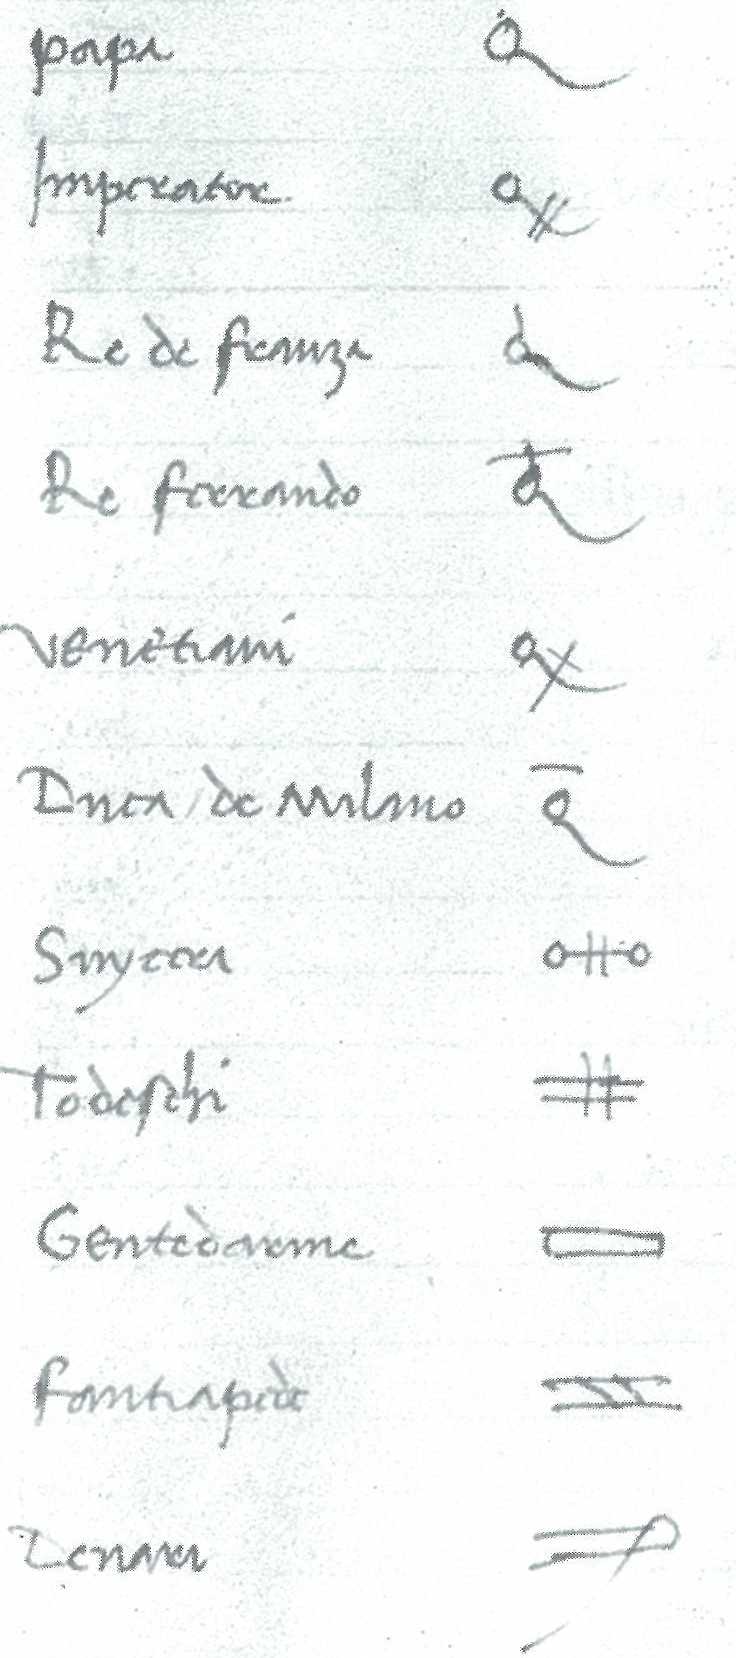 papa
Imperatore
Re de franza
Re ferrando
Venetiani
Duca de Milano
Svyceri
Todeschi
Gentedarme
fantiapede
Denari